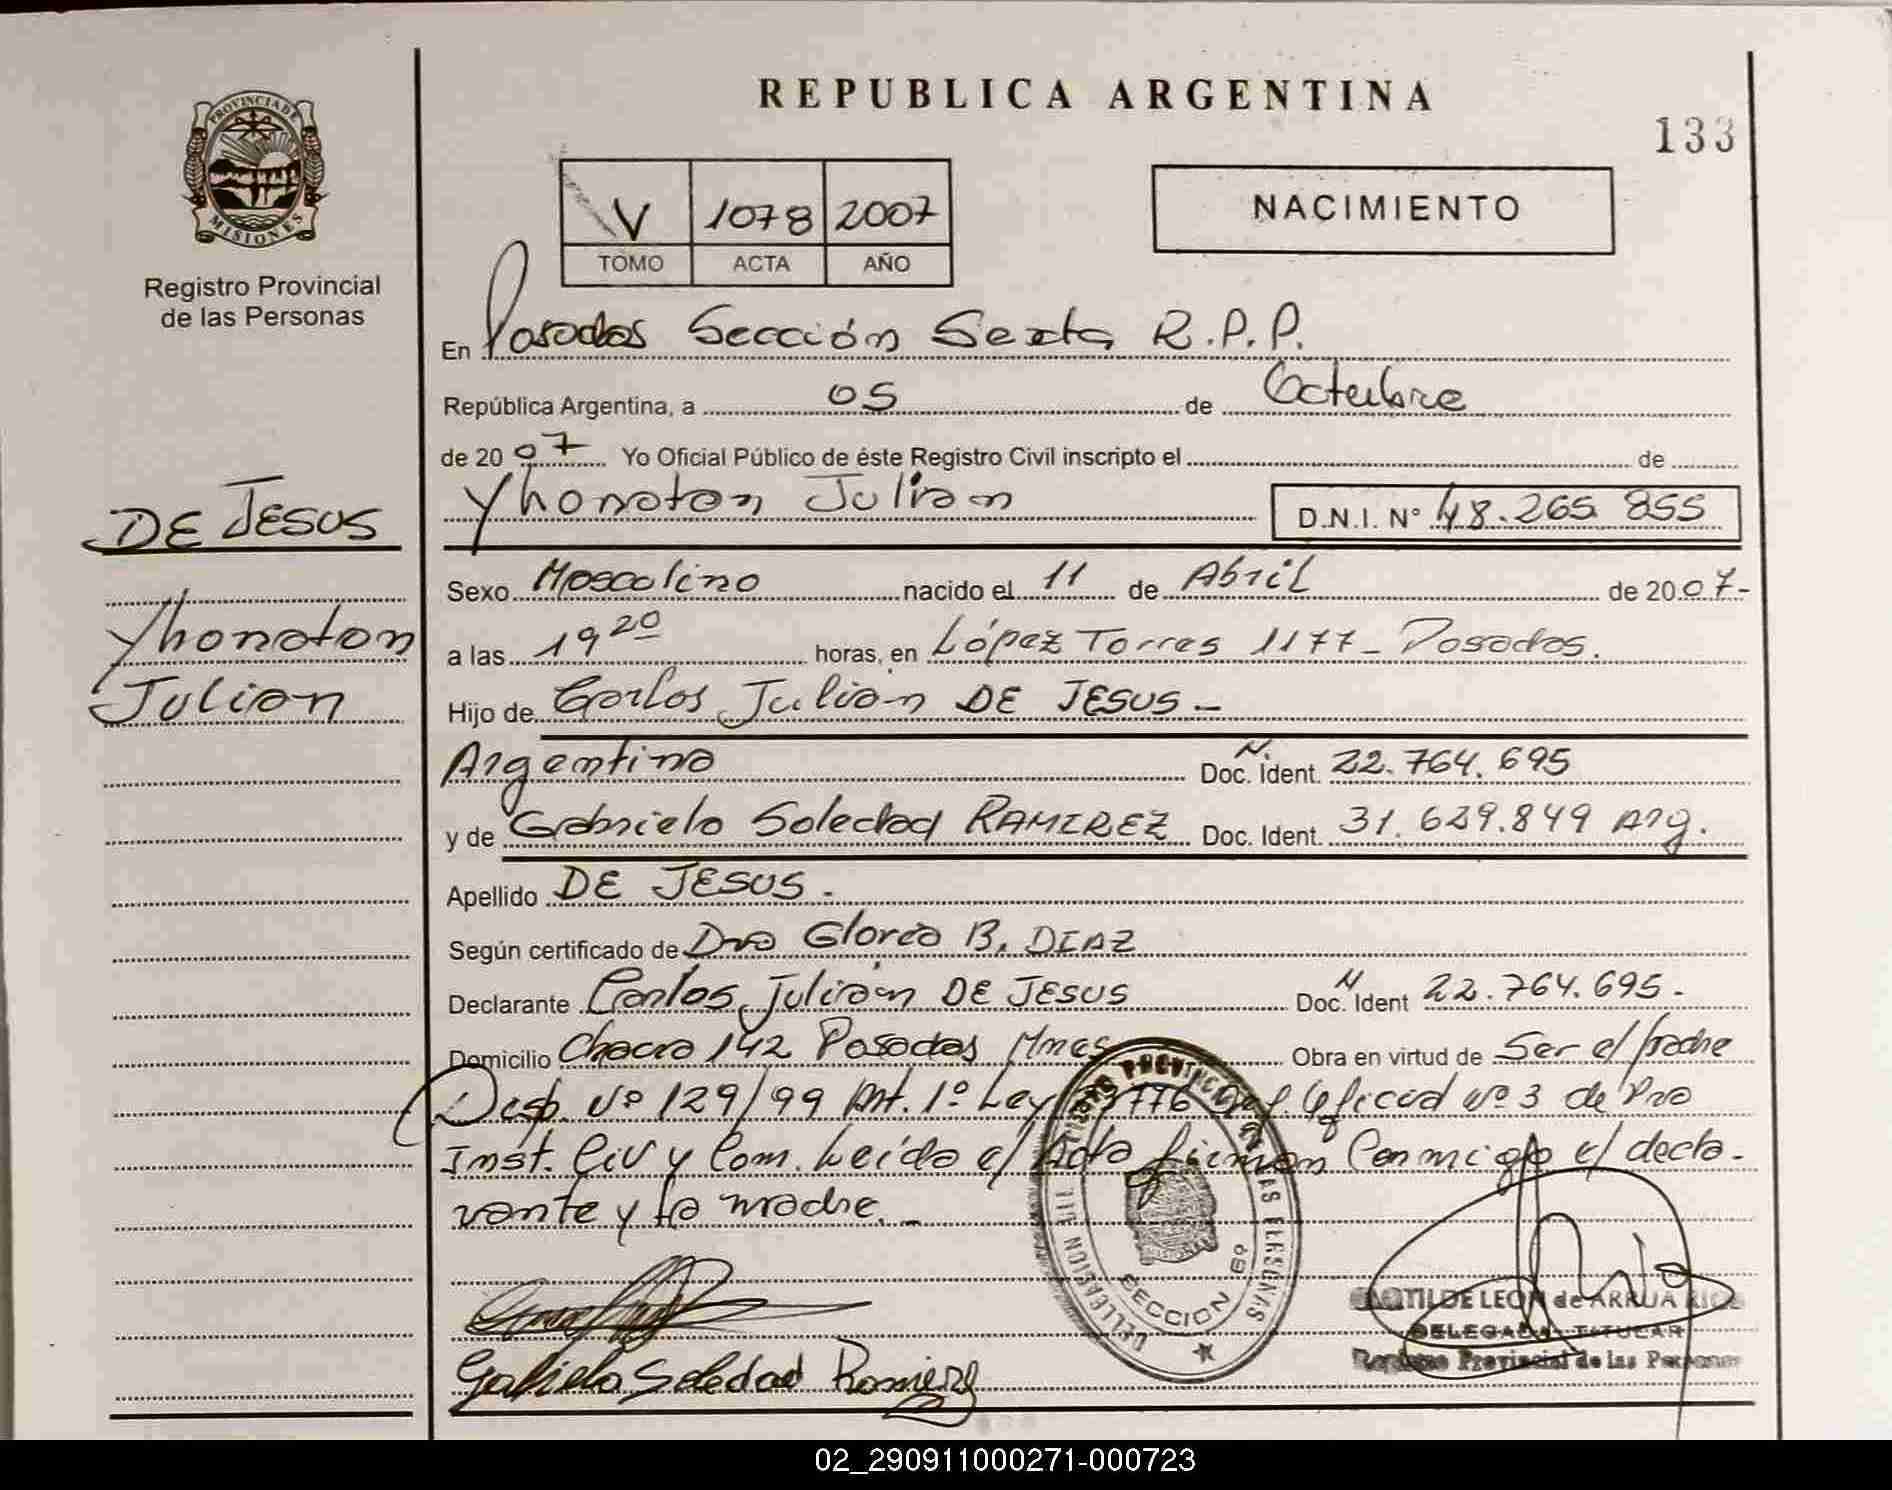 REPUBLICA ARGENTINA
133
PROVINCIA DE
MISIONES
Registro Provincial
de las Personas
V 1078 2007
TOMO ACTA AÑO
NACIMIENTO
En Posadas Sección Sexta R.P.P.
República Argentina, a 05 de Octubre
de 2007 Yo Oficial Público de éste Registro Civil inscripto el de
Yhonatan Julian D.N.I. N° 48.265.855
DE JESUS
Yhonatan
Julian
Sexo Masculino nacido el 11 de Abril de 2007-
a las 19 20 horas, en López Torres 1177 - Posadas.
Hijo de Carlos Julián DE JESUS -
Argentino N. Doc. Ident. 22.764.695
y de Gabriela Soledad RAMIREZ Doc. Ident. 31.629.849 Arg.
Apellido DE JESUS.
Según certificado de Dra Gloria B. DIAZ
Declarante Carlos Julián DE JESUS N Doc. Ident 22.764.695-
Domicilio Chacra 142 Posadas Mnes Obra en virtud de Ser el padre
Disp. Nº 129/99 Art. 1º Ley Nº 3 de
Inst. Civ y Com. Leída el Acta firman Conmigo el decla-
rante y la madre. -
Gabriela Soledad Ramirez
DELEGACION
SECCION 6º
LEON de ARRUA
DELEGADA TITULAR
Provincial de las Personas
02_290911000271-000723